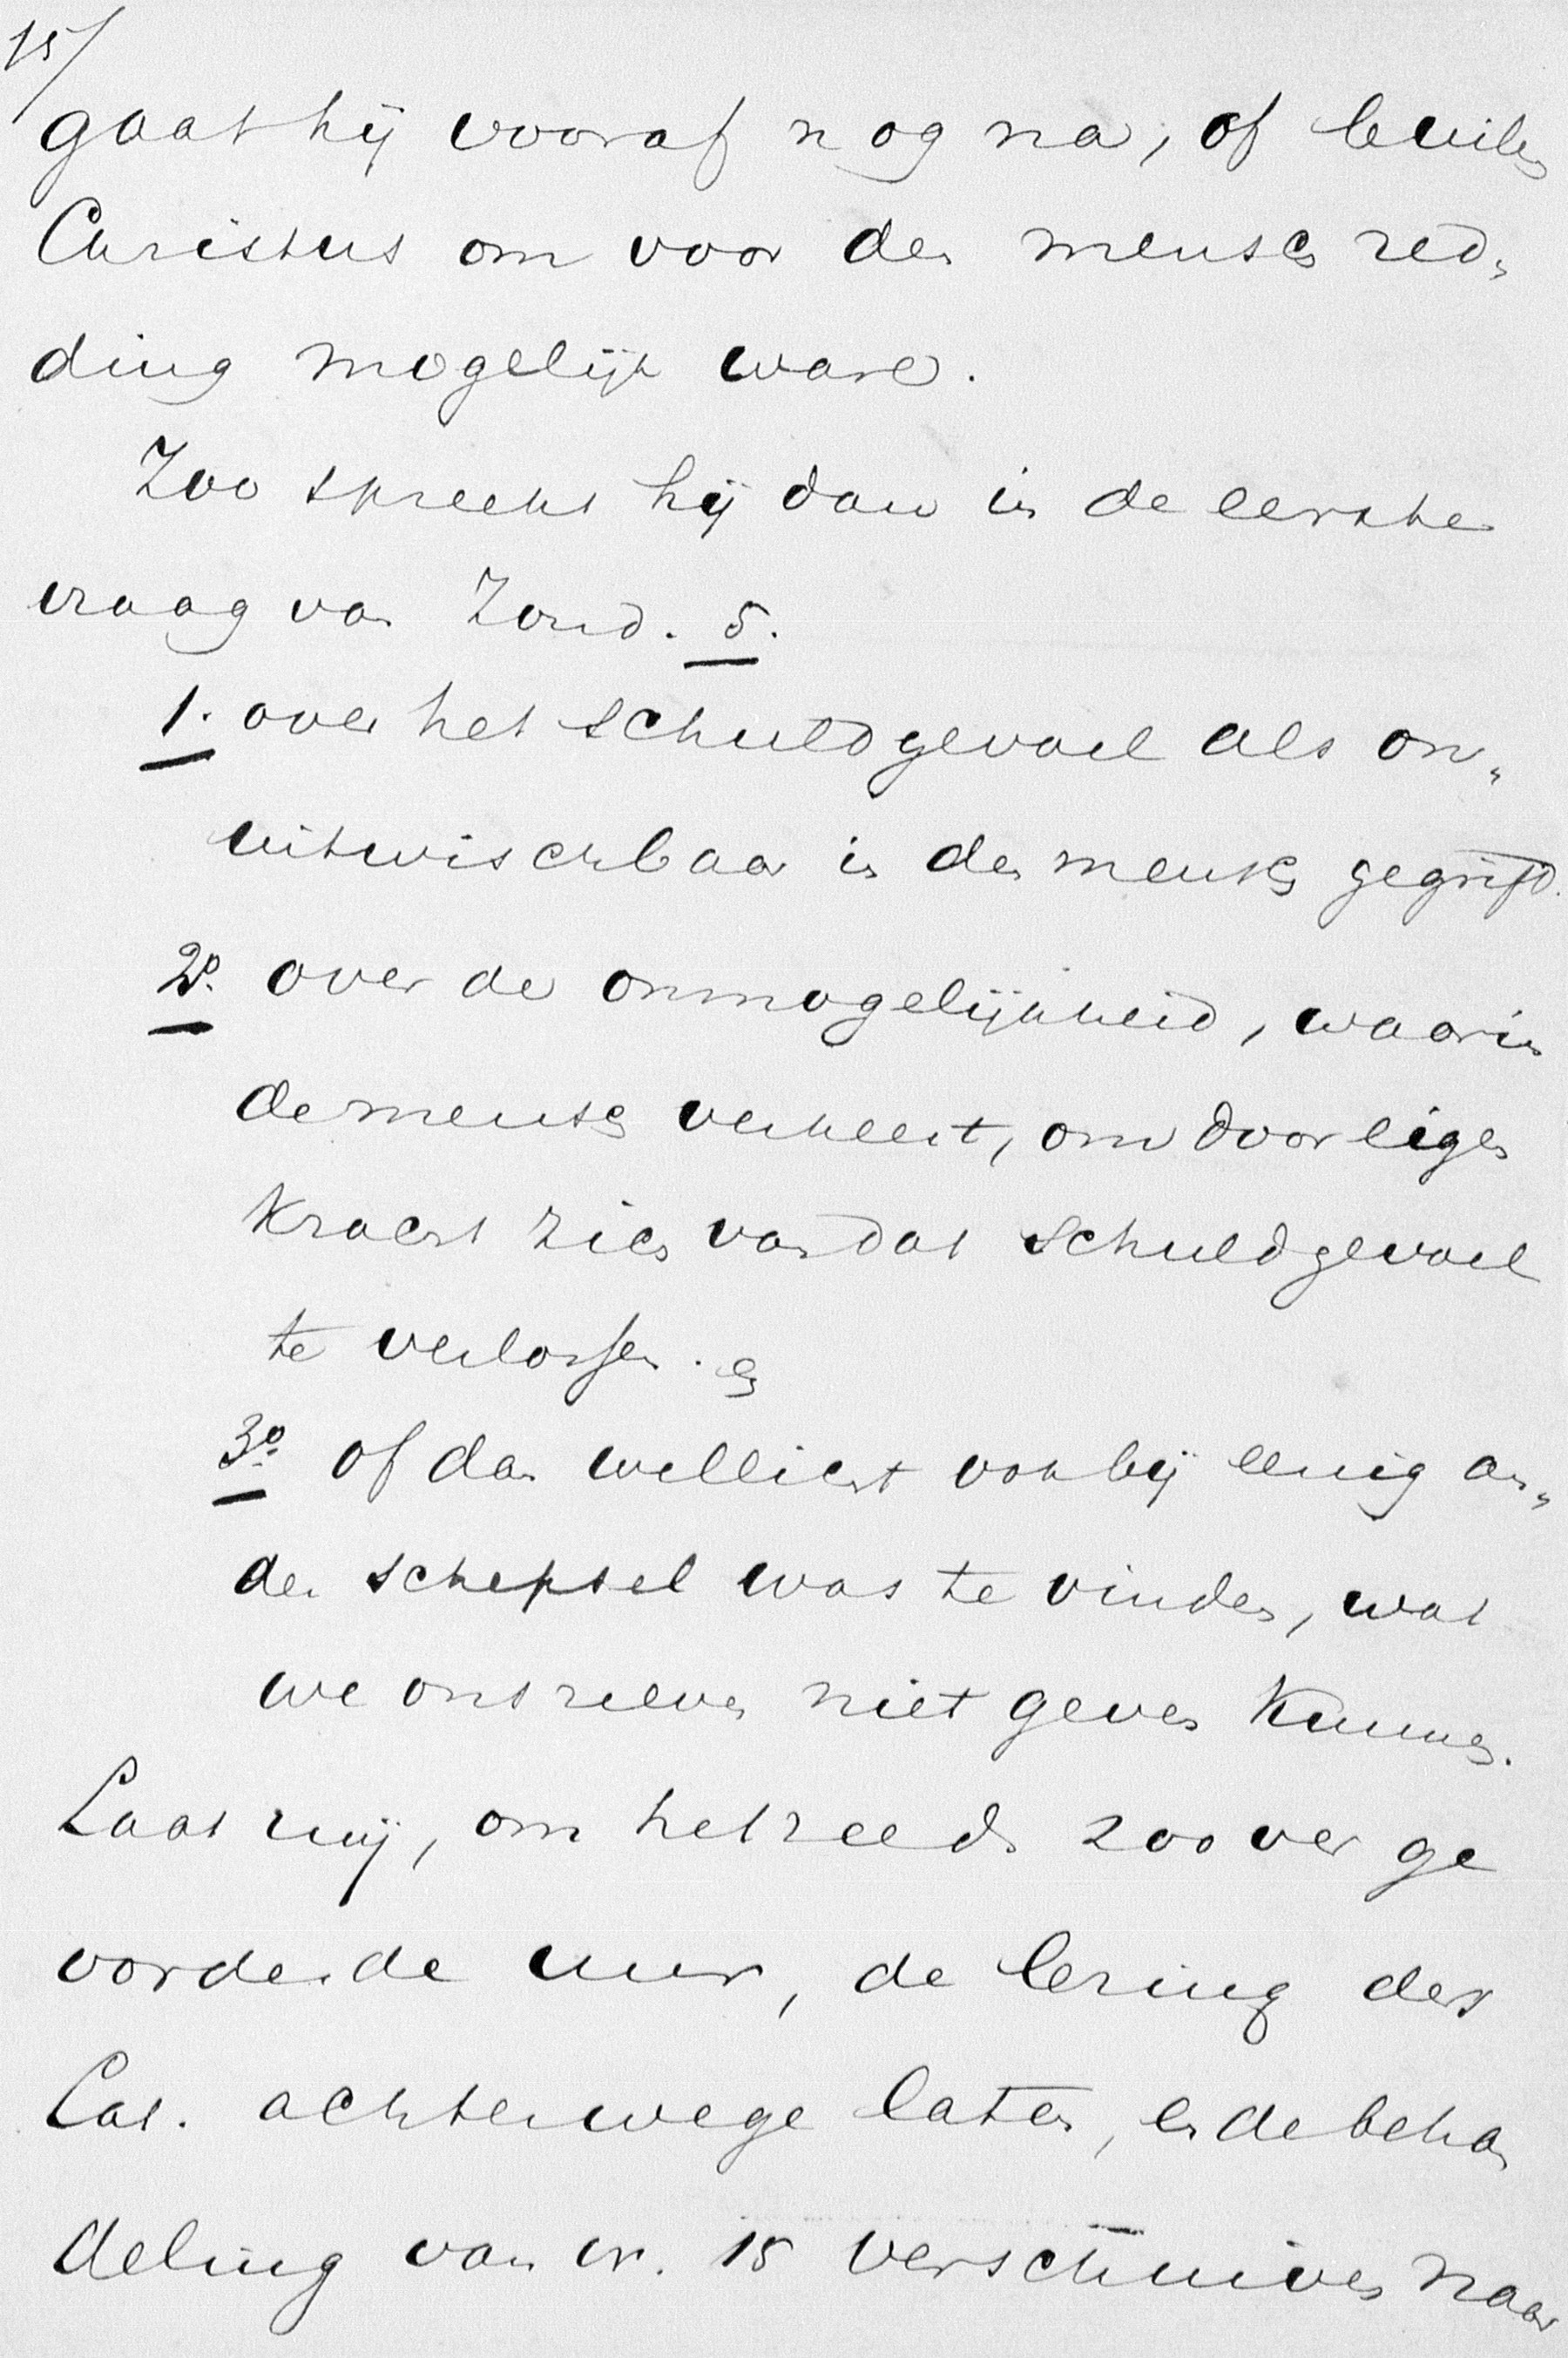 15/
gaat hij vooraf nog na, of buiten
Christus om voor den mensch red„
ding mogelijk ware.
Zoo spreekt hij dan in de eerste
vraag van Zond. 5.
1. over het schuldgevoel als on„
uitwischbaar in den mensch gegrift.
2º. over de onmogelijkheid, waarin
de mensch verkeert, om door eigen
kracht zich van dat schuldgevoel
te verlossen. en
3º. of dan wellicht ook bij eenig an„
der schepsel was te vinden, wat
we ons zelven niet geven kunnen.
Laat mij, om het reeds zoo ver ge
vorderde uur, de lezing des
Cat. achterwege laten, en de behan
deling van vr. 15 verschuiven naar